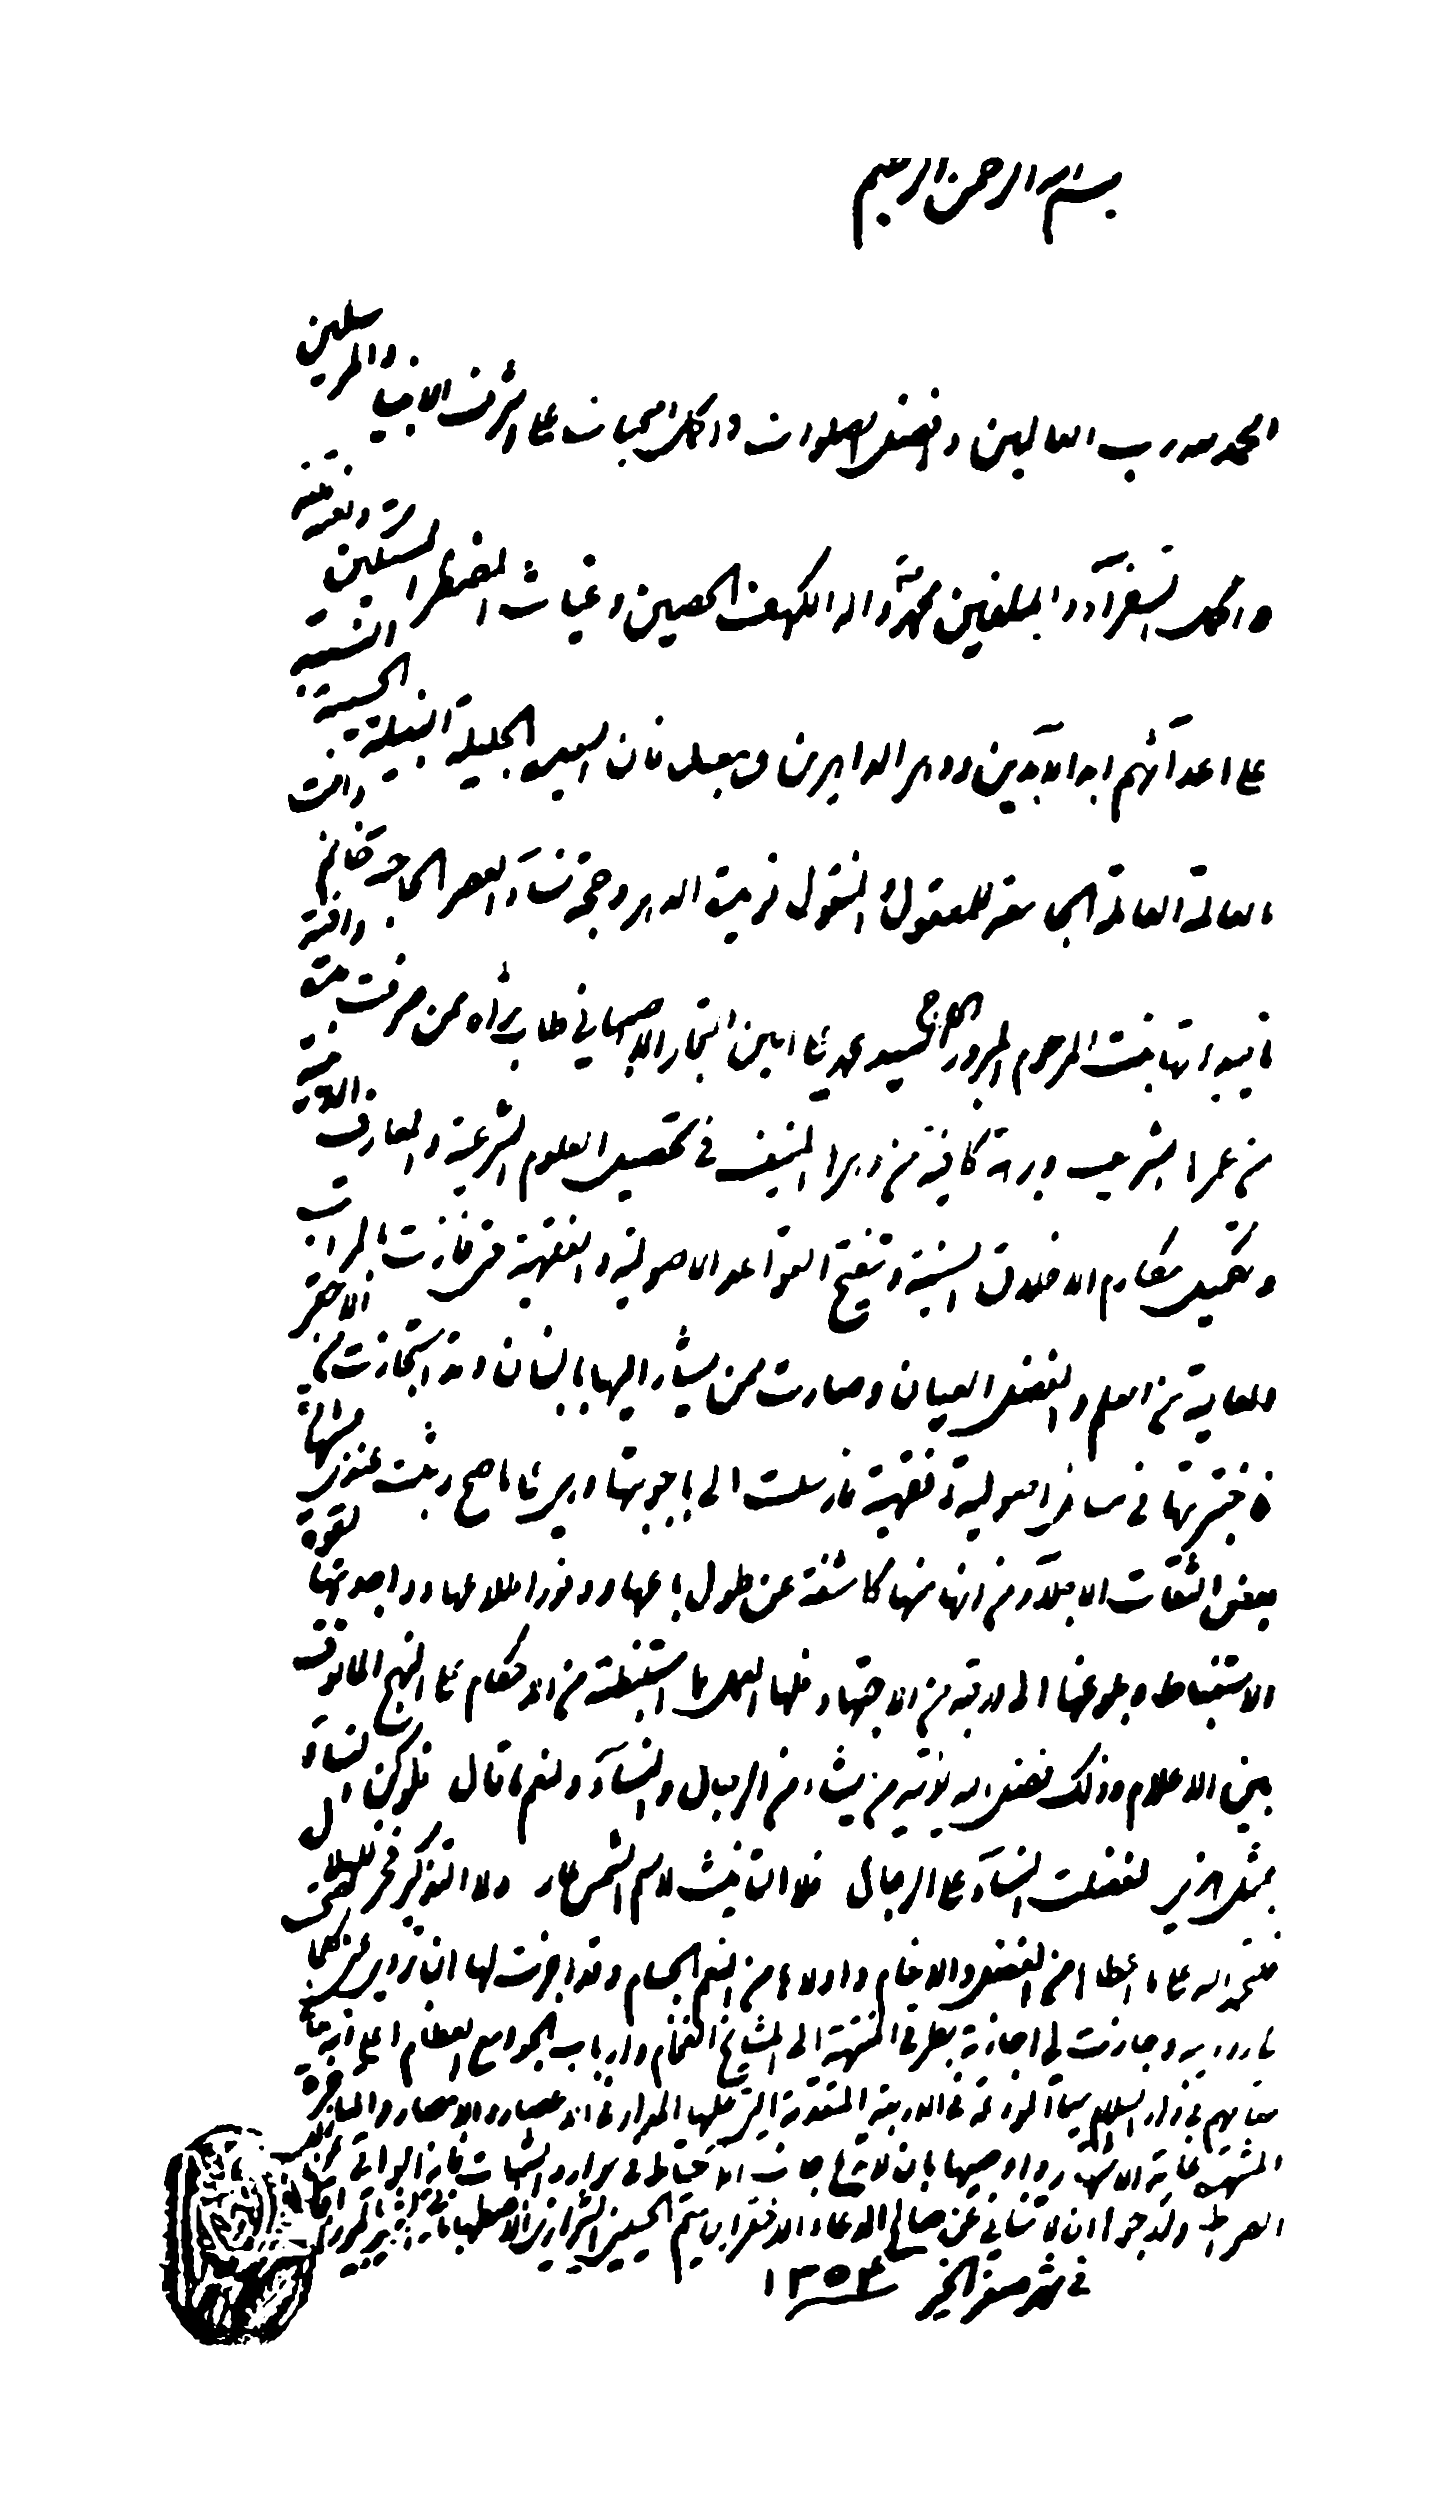 بسم الله الرحمن الرحيم
الحمد لله رب العالمين وافضل الصلوات واكمل التحيات على اشرف الانبياء والمرسلين
واكمل السفرآء المبلغين محمد وآله الكهف الحصين وغياث المضطر المستكين واللعنة
على اعدآئهم ابد الابدين ودهر الداهرين وبعد فان السيدة الجليلة النبيلة الحسيبة النسيبة
العالمة العاملة الجامعة للمعقول والمنقول زينة الدهر وحجة نسآء العصر الحاجية خانم
امينة انها بنت المرحوم المبرور الحاج السيد محمد على امين التجار الاصبهاني طاب ثراه ممن صرفت مدة وافية
من عمرها الشريف وبرهة كافية من دهرها المنيف في تحصيل العلوم الشرعية والمعارف الدينية
وتكميل مكارم الاخلاق السنية وتنقيح القواعد الاصولية والفقهية حتى فازت بالمراتب
العالية من العلم والفضل العيان وصارت ممن يشار اليها بالبنان وقد استجازت مني
فاختبرتها في مسائل اصولية وفقهية فارسلت الى باجوبتها وهى على ما صح وثبت عندى بشهادة
بعض الثقات الاجلآء من انها منها كاشفة عن طول باعها ووفور اطلاعها وواجديتها لقوة
الاستنباط وبلوغها الى مرتبة من الاجتهاد فلها العمل بما استنبطته من الاحكام على النهج المألوف
بين الاعلام وذلك فضل الله يؤتيه من يشاء من الرجال والنسآء ولنعم ما قال فلو كن النساء
بمثل هذى لفضلت النسآء على الرجال فلا التأنيث لاسم الشمس عار ولا التذكير فخر للهلال
فلتحمد الله على ما اعطاها من الفضل والانعام واولاها من النعم الجسام وقد اجزت لها ان تروى عنى كلما
صح لى روايته وجازت لى اجازته بطرقى المنتهية الى المشايخ الفخام وارباب الجوامع العظام اعلى الله
مقامهم في دار السلام سيما المودعة في الاربعة المتقدمة التى عليها المدار في الاعصار والامصار
المشتهرة غاية الاشتهار واوصيها بان لا تدع جانب الاحتياط في موارد الشبهات
الصراط وارجوها ان لا تنساني عن صالح الدعاء الاحقر ابراهيم الحسيني الشيرازي الاصطهباناتي
في شهر صفر الخير ١٣٥٤